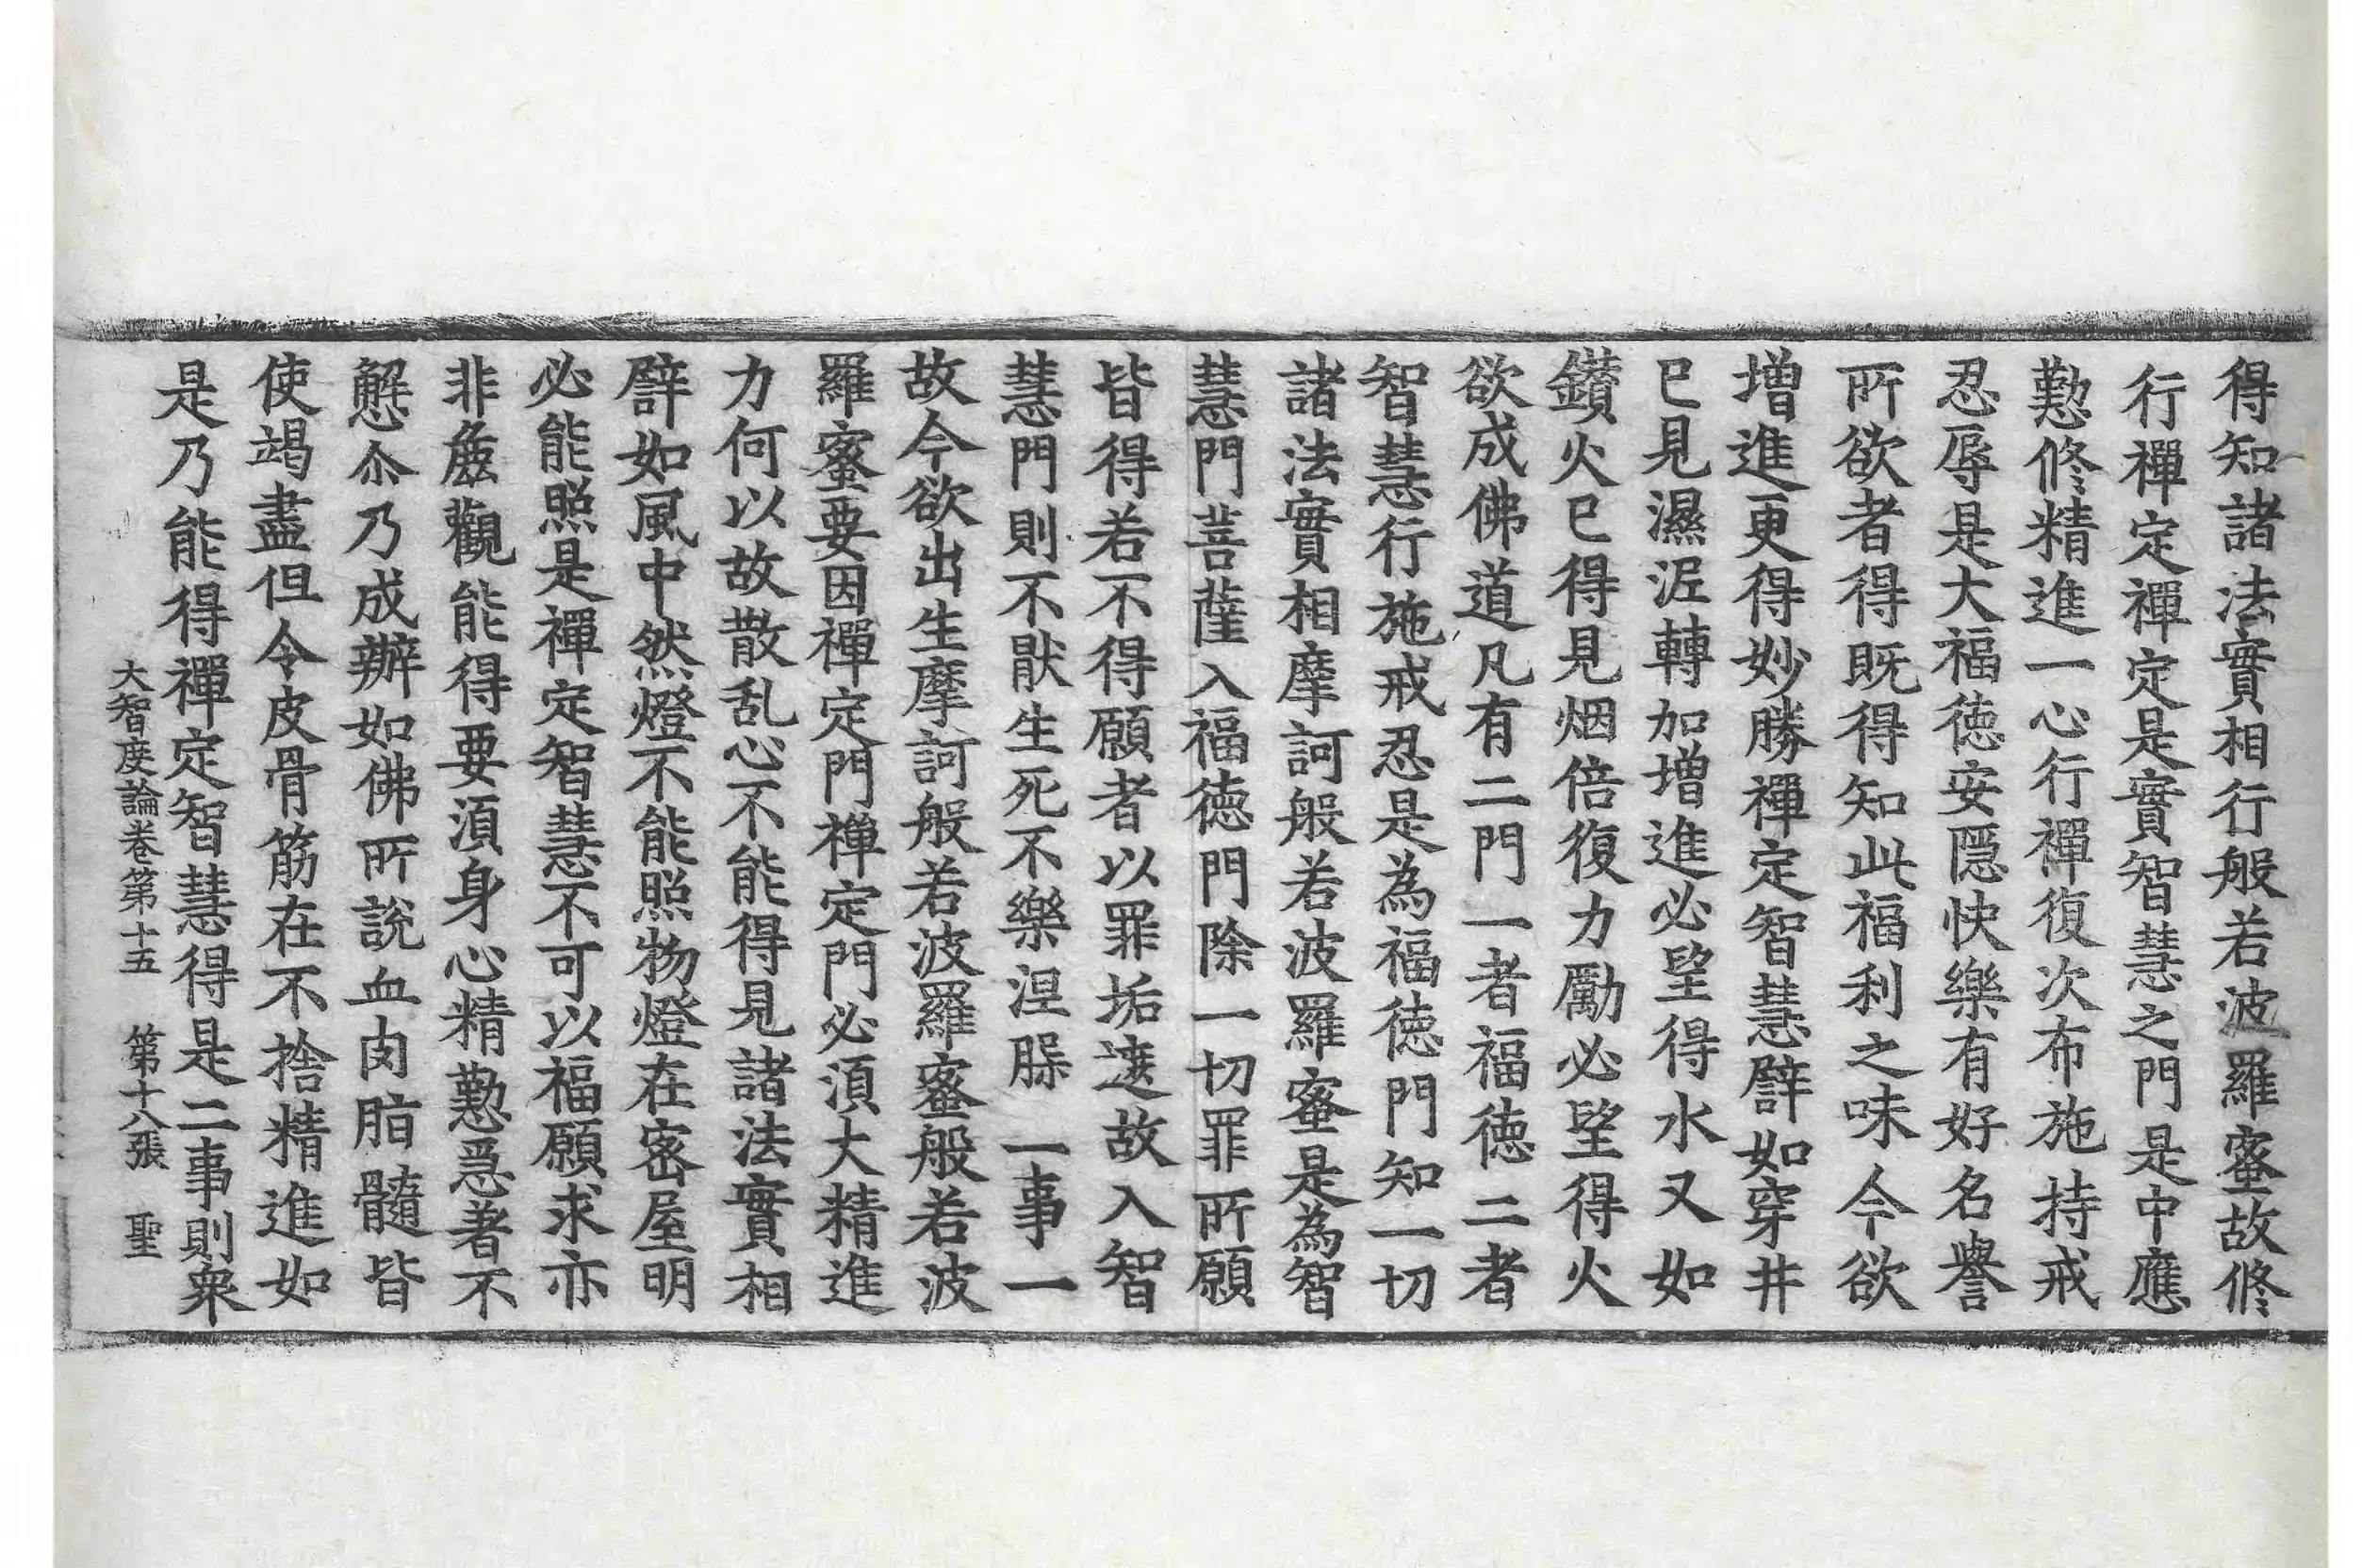 得知諸法實相行般若波羅蜜故修
行禪定禪定是實智慧之門是中應
懃修精進一心行禪復次布施持戒
忍辱是大福徳安隱快樂有好名譽
所欲者得既得知此福利之味今欲
增進更得妙勝禪定智慧譬如穿井
已見濕泥轉加增進必望得水又如
鑚火已得見烟倍復力勵必望得火
欲成佛道凡有二門一者福徳二者
智慧行施戒忍是為福徳門知一切
諸法實相摩訶般若波羅蜜是為智
慧門菩薩入福徳門除一切罪所願
皆得若不得願者以罪垢遮故入智
慧門則不猒生死不樂涅槃一事一
故今欲出生摩訶般若波羅蜜般若波
羅蜜要因禪定門禪定門必湏大精進
力何以故散乱心不能得見諸法實相
譬如風中然燈不能照物燈在密屋明
必能照是禪定智慧不可以福願求亦
非麁觀能得要湏身心精懃急著不
懈尒乃成辦如佛所說血肉脂髓皆
使竭盡但令皮骨筋在不捨精進如
是乃能得禪定智慧得是二事則衆
大智度論卷第十五　第十八張　聖